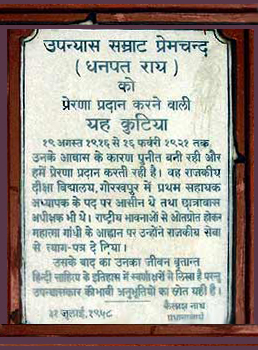 उपन्यास सम्राट प्रेमचन्द
(धनपत राय)
को
प्रेरणा प्रदान करने वाली
यह कुटिया
१९ अगस्त १९१६ से १६ फर्वरी १९२१ तक
उनके आवास के कारण पुनीत बनी रही और
हमें प्रेरणा प्रदान करती रही है। वह राजकीय
दीक्षा विद्यालय, गोरखपुर में प्रथम सहायक
अध्यापक के पद पर आसीन थे तथा छात्रावास
अधीक्षक भी थे। राष्ट्रीय भावनाओं से ओतप्रोत होकर
महात्मा गाँधी के आह्वान पर उन्होंने राजकीय सेवा
से त्याग-पत्र दे दिया।
उसके बाद का उनका जीवन वृतान्त
हिन्दी साहित्य के इतिहास में स्वर्णाक्षरों में लिखा है परन्तु
उपन्यासकार की भावी अनुभूतियों का स्रोत यही है।
कैलाश नाथ
३१ जुलाई, १९५८ प्रधानाचार्य